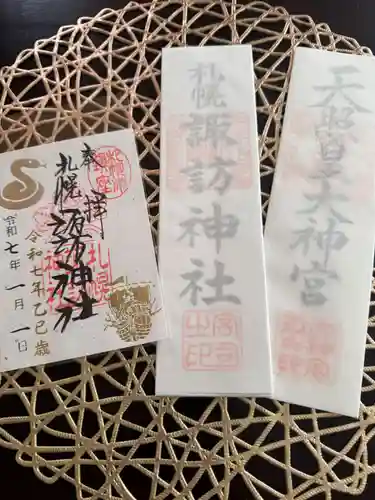 奉拝
札幌
諏訪神社
令和七年乙巳歳
令和七年一月一日
札幌諏訪神社
宮司之印
天照皇大神宮